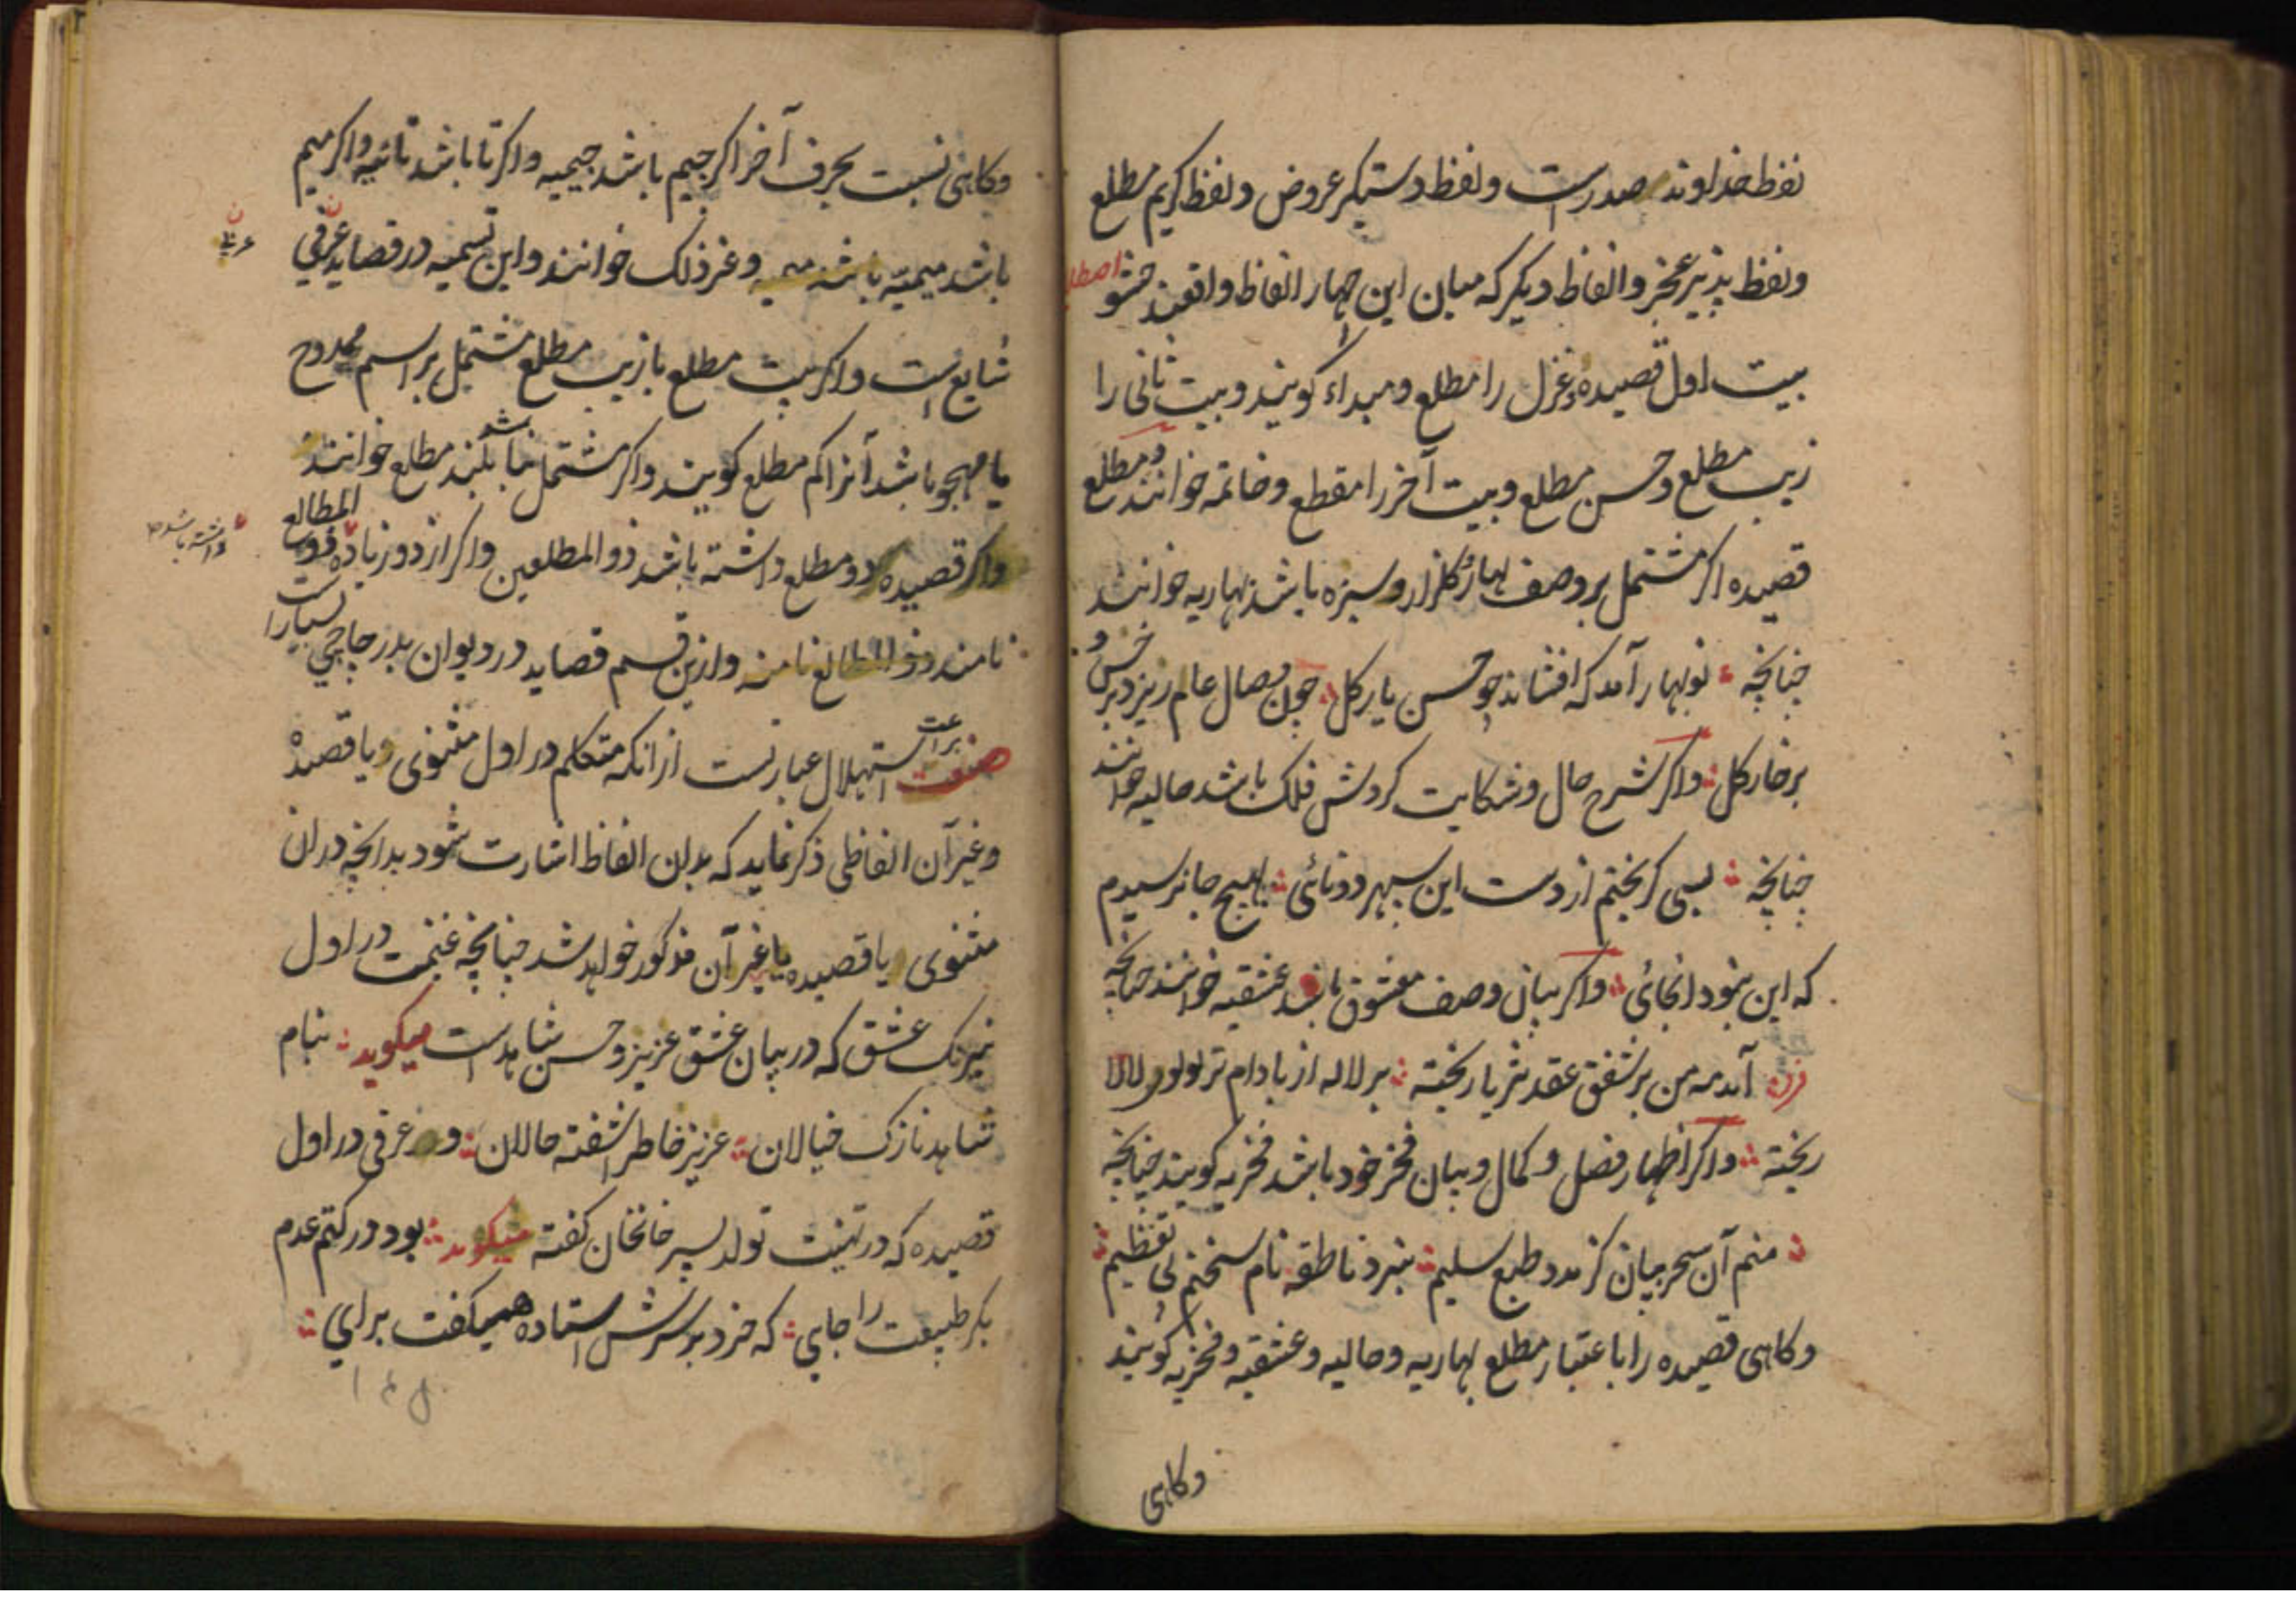 لفظ خداوند صدرست ولفظ دستیکر عروض ولفظ کریم مطلع
ولفظ پذیر عجز والفاظ دیکر که میان این چهار الفاظ واقعند حشو
بیت اول قصیده وغزل را مطلع ومبداء کویند وبیت ثانی را
زیب مطلع وحسن مطلع وبیت آخر را مقطع وخاتمه خوانند ومطلع
قصیده اکر مشتمل بر وصف بهار وکلزار وسبزه باشد بهاریه خوانند
چنانچه نوبهار آمد که افشاند چو حسن یار کل چون وصال عام ریزد بر خس و
بر خار کل واکر شرح حال وشکایت کردش فلک باشد حالیه خوانند
چنانچه بسی کریختم از دست این سپهر دوتائی بهیچ جا نرسیدم
که این نبود انجائی واکر بیان وصف معشوق باشد عشقیه خوانند چنانچه
آمد مه من بر شفق عقد ثریا ریخته بر لاله از بادام تر لولوی لالا
ریخته واکر اظهار فضل وکمال وبیان فخر خود باشد فخریه کویند چنانچه
منم آن سحر بیان کز مدد طبع سلیم نبرد ناطقه نام سخنم بی تعظیم
وکاهی قصیده را باعتبار مطلع بهاریه وحالیه وعشقیه وفخریه کویند
وکاهی
وکاهی نسبت بحرف آخر اکر جیم باشد جیمیه واکر تا باشد تائیه واکر میم
باشد میمیه وغر ذلک خوانند واین تسمیه در قصاید عرفی
شایع است واکر بیت مطلع یا زیب مطلع مشتمل بر اسم ممدوح
یا مهجو باشد آنرا کم مطلع کویند واکر مشتمل نباشد بلند مطلع خوانند
واکر قصیده دو مطلع داشته باشد ذو المطلعین واکر از دو زیاده ذو المطالع
نامند وازین قسم قصاید در دیوان بدر چاچی بسیار است
صنعت براعت استهلال عبارتست از انکه متکلم در اول مثنوی ویا قصیده
وغیر آن الفاظی ذکر نماید که بدان الفاظ اشارت شود بدانچه دران
مثنوی یا قصیده یا غیر آن مذکور خواهد شد چنانچه غنیمت در اول
نیرنک عشق که در بیان عشق عزیز وحسن شاهد است میکوید بنام
شاهد نازک خیالان عزیز خاطر اشفته حالان و عرفی در اول
قصیده که در تهنیت تولد پسر خانخان کفته میکوید بود در کتم عدم
بکر طبیعت را جای که خرد بر سرش استاده همیکفت برای